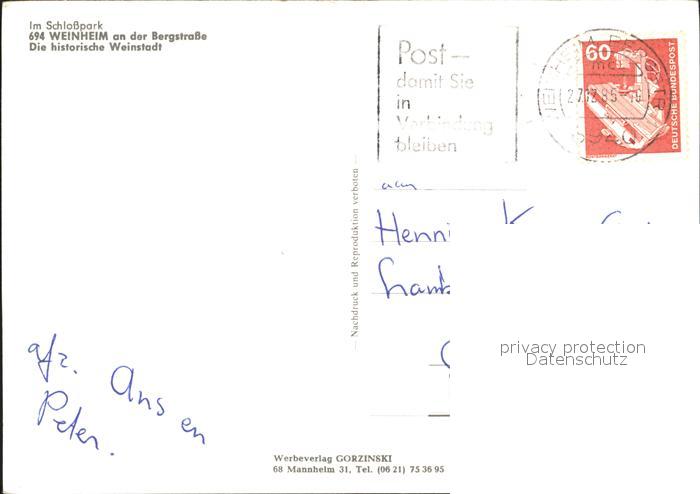 Im Schloßpark
694 WEINHEIM an der Bergstraße
Die historische Weinstadt
Post –
damit Sie
in
Verbindung
bleiben
60
DEUTSCHE BUNDESPOST
— Nachdruck und Reproduktion verboten —
Henni
privacy protection
Datenschutz
Peter.
Werbeverlag GORZINSKI
68 Mannheim 31, Tel. (06 21) 75 36 95